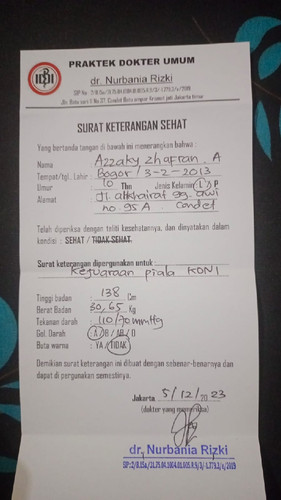 PRAKTEK DOKTER UMUM
dr. Nurbania Rizki
SURAT KETERANGAN SEHAT
Yang bertanda tangan di bawah ini menerangkan bahwa :
Nama : Azzaky Zhafran. A
Tempat/tgl. Lahir : Bogor / 3-2-2013
Umur : 10 Thn Jenis Kelamin : L / P
Alamat : Jl. alkhairaf gg. awi
no. 95 A. Condet
Telah diperiksa dengan teliti kesehatannya, dan dinyatakan dalam
kondisi : SEHAT / TIDAK SEHAT.
Surat keterangan dipergunakan untuk :
Kejuaraan piala KONI
Tinggi badan : 138 Cm
Berat Badan : 30,65 Kg
Tekanan darah : 110/70 mmHg
Gol. Darah : A / B / AB / O
Buta warna : YA / TIDAK
Demikian surat keterangan ini dibuat dengan sebenar-benarnya dan
dapat di pergunakan semestinya.
Jakarta, 5/12/2023
(dokter yang memeriksa)
dr. Nurbania Rizki